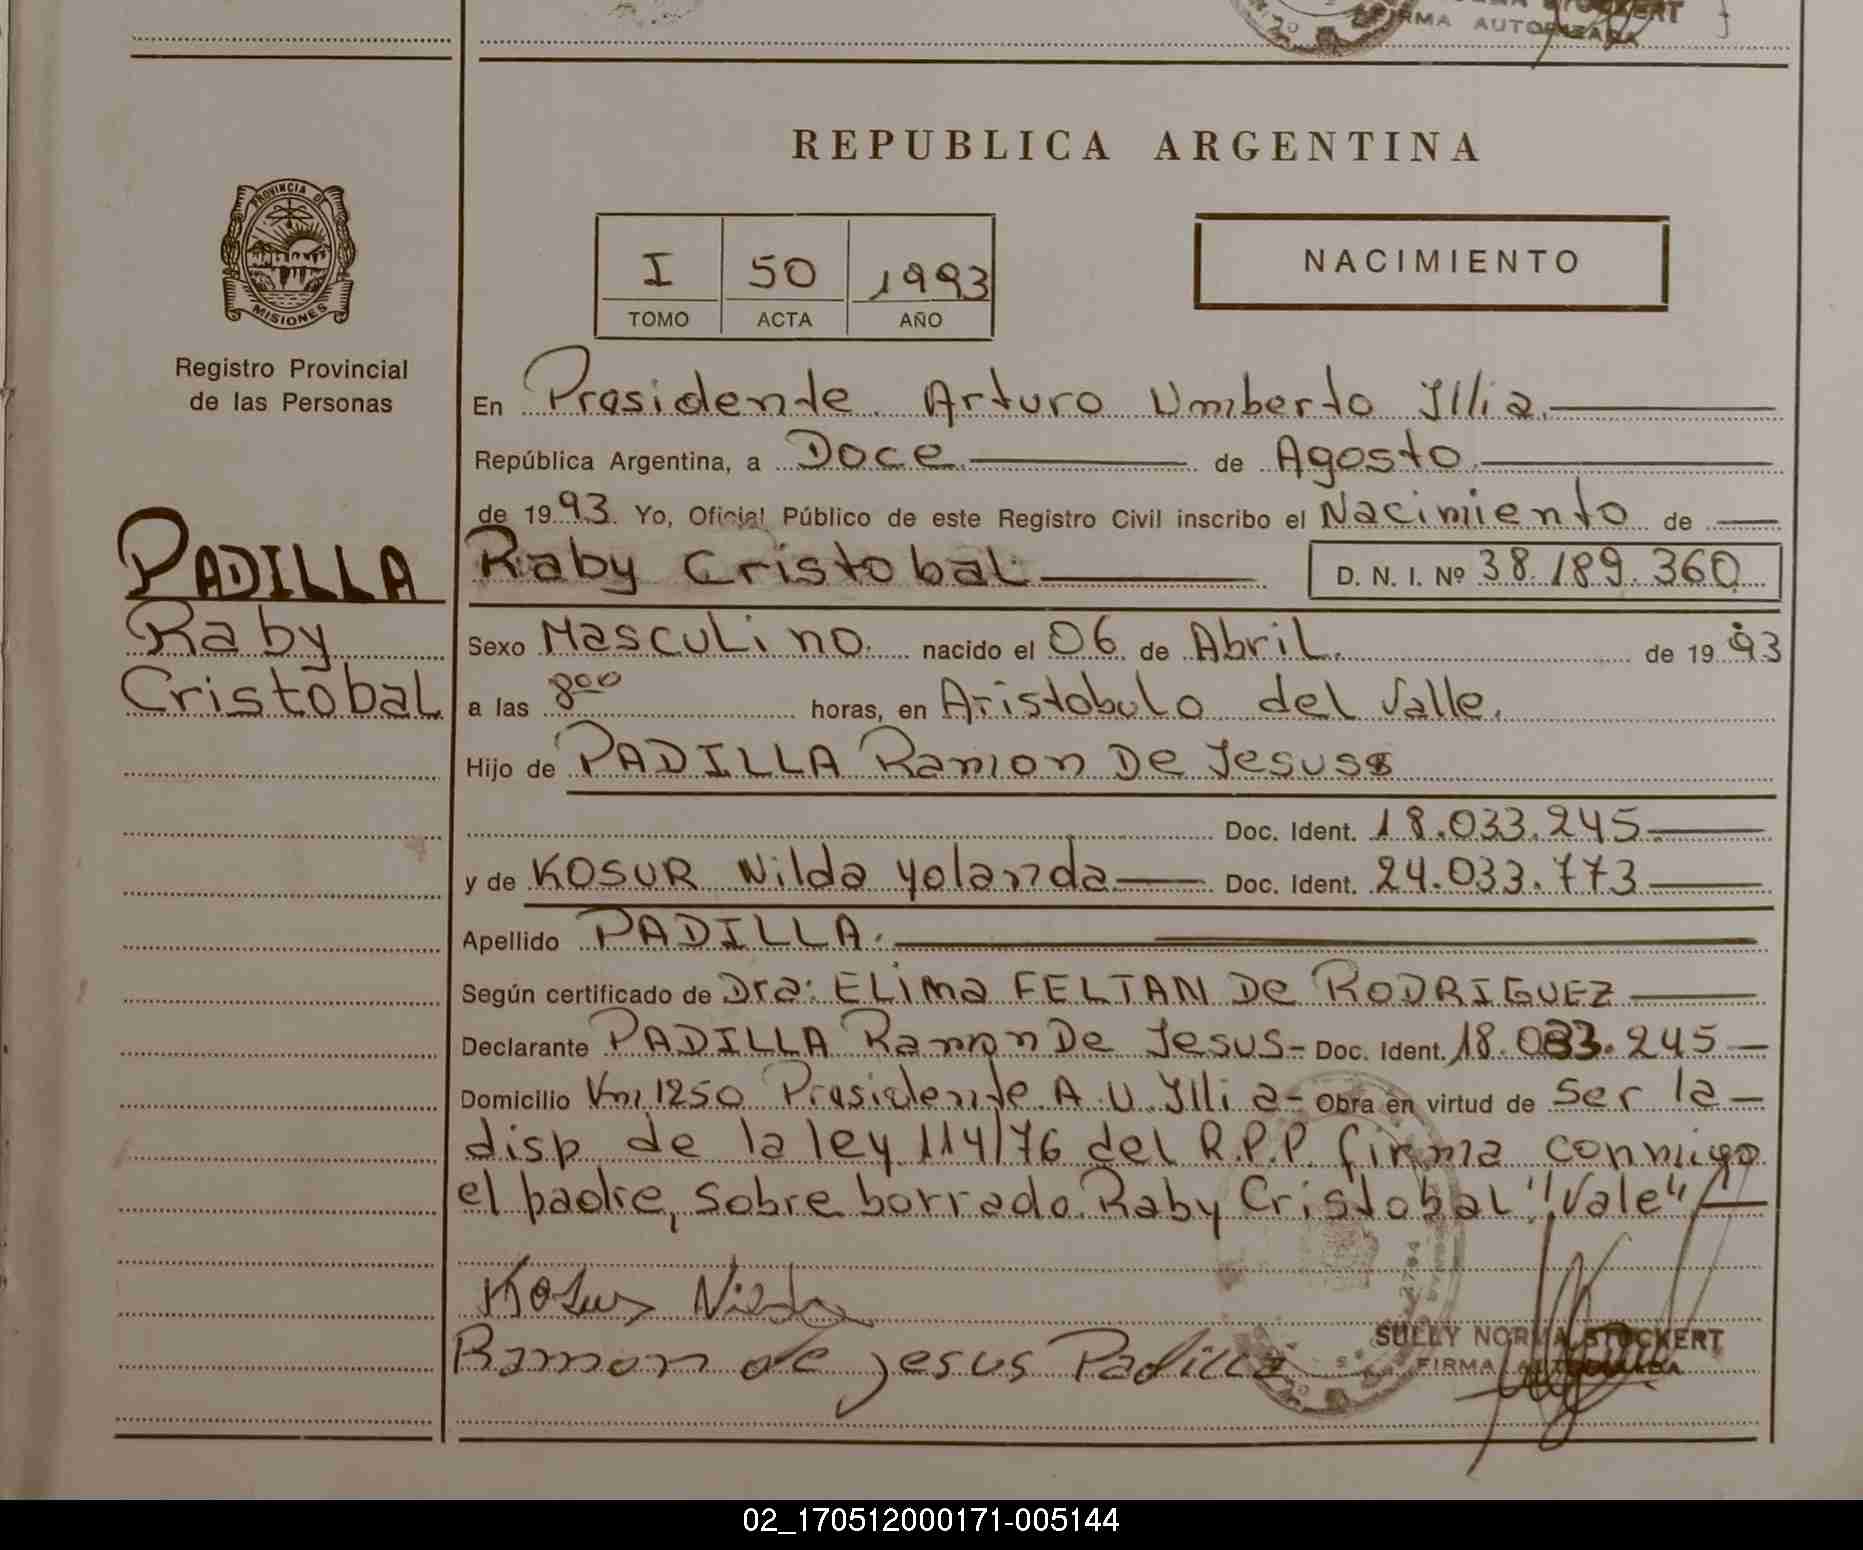 STOCKERT
FIRMA AUTORIZADA
REPUBLICA ARGENTINA
PROVINCIA DE
MISIONES
Registro Provincial
de las Personas
I 50 1993
TOMO ACTA AÑO
NACIMIENTO
En Presidente Arturo Umberto Illia
República Argentina, a Doce de Agosto
de 1993. Yo, Oficial Público de este Registro Civil inscribo el Nacimiento de
PADILLA
Raby Cristobal D. N. I. Nº 38.189.360
Raby
Sexo Masculino. nacido el 06 de Abril. de 1993
Cristobal
a las 800 horas, en Aristobulo del Valle.
Hijo de PADILLA Ramon De Jesus
Doc. Ident. 18.033.245
y de KOSUR Nilda Yolanda Doc. Ident. 24.033.773
Apellido PADILLA.
Según certificado de Dra: ELima FELTAN De RODRIGUEZ
Declarante PADILLA Ramon De Jesus- Doc. Ident. 18.033.245
Domicilio Km 1250 Presidente A.U. Illia- Obra en virtud de ser la
disp de la ley 114/76 del R.P.P. firma conmigo
el padre, sobre borrado Raby Cristobal "Vale"
Kosur Nilda
SULLY NORMA STOCKERT
Ramon de jesus Padilla
FIRMA AUTORIZADA
02_170512000171-005144